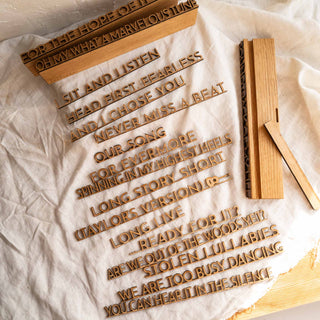 FOR THE HOPE OF IT
OH MY, WHAT A MARVELOUS TUNE
SIT AND LISTEN
HEAD FIRST, FEARLESS
AND I CHOSE YOU
NEVER MISS A BEAT
OUR SONG
FOR EVERMORE
RUNNING IN MY HIGHEST HEELS
LONG STORY SHORT
(TAYLOR'S VERSION)
LONG LIVE
...READY FOR IT?
ARE WE OUT OF THE WOODS YET?
STOLEN LULLABIES
WE ARE TOO BUSY DANCING
YOU CAN HEAR IT IN THE SILENCE